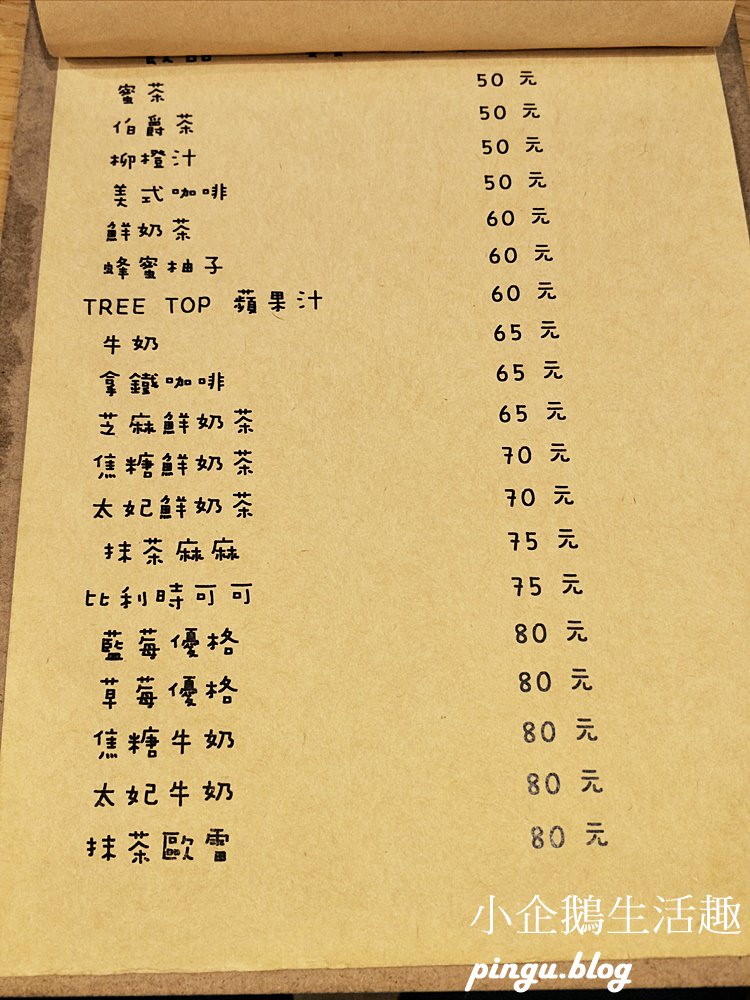 蜜茶 50 元
伯爵茶 50 元
柳橙汁 50 元
美式咖啡 50 元
鮮奶茶 60 元
蜂蜜柚子 60 元
TREE TOP 蘋果汁 60 元
牛奶 65 元
拿鐵咖啡 65 元
芝麻鮮奶茶 65 元
焦糖鮮奶茶 70 元
太妃鮮奶茶 70 元
抹茶麻麻 75 元
比利時可可 75 元
藍莓優格 80 元
草莓優格 80 元
焦糖牛奶 80 元
太妃牛奶 80 元
抹茶歐蕾 80 元
小企鵝生活趣
pingu.blog